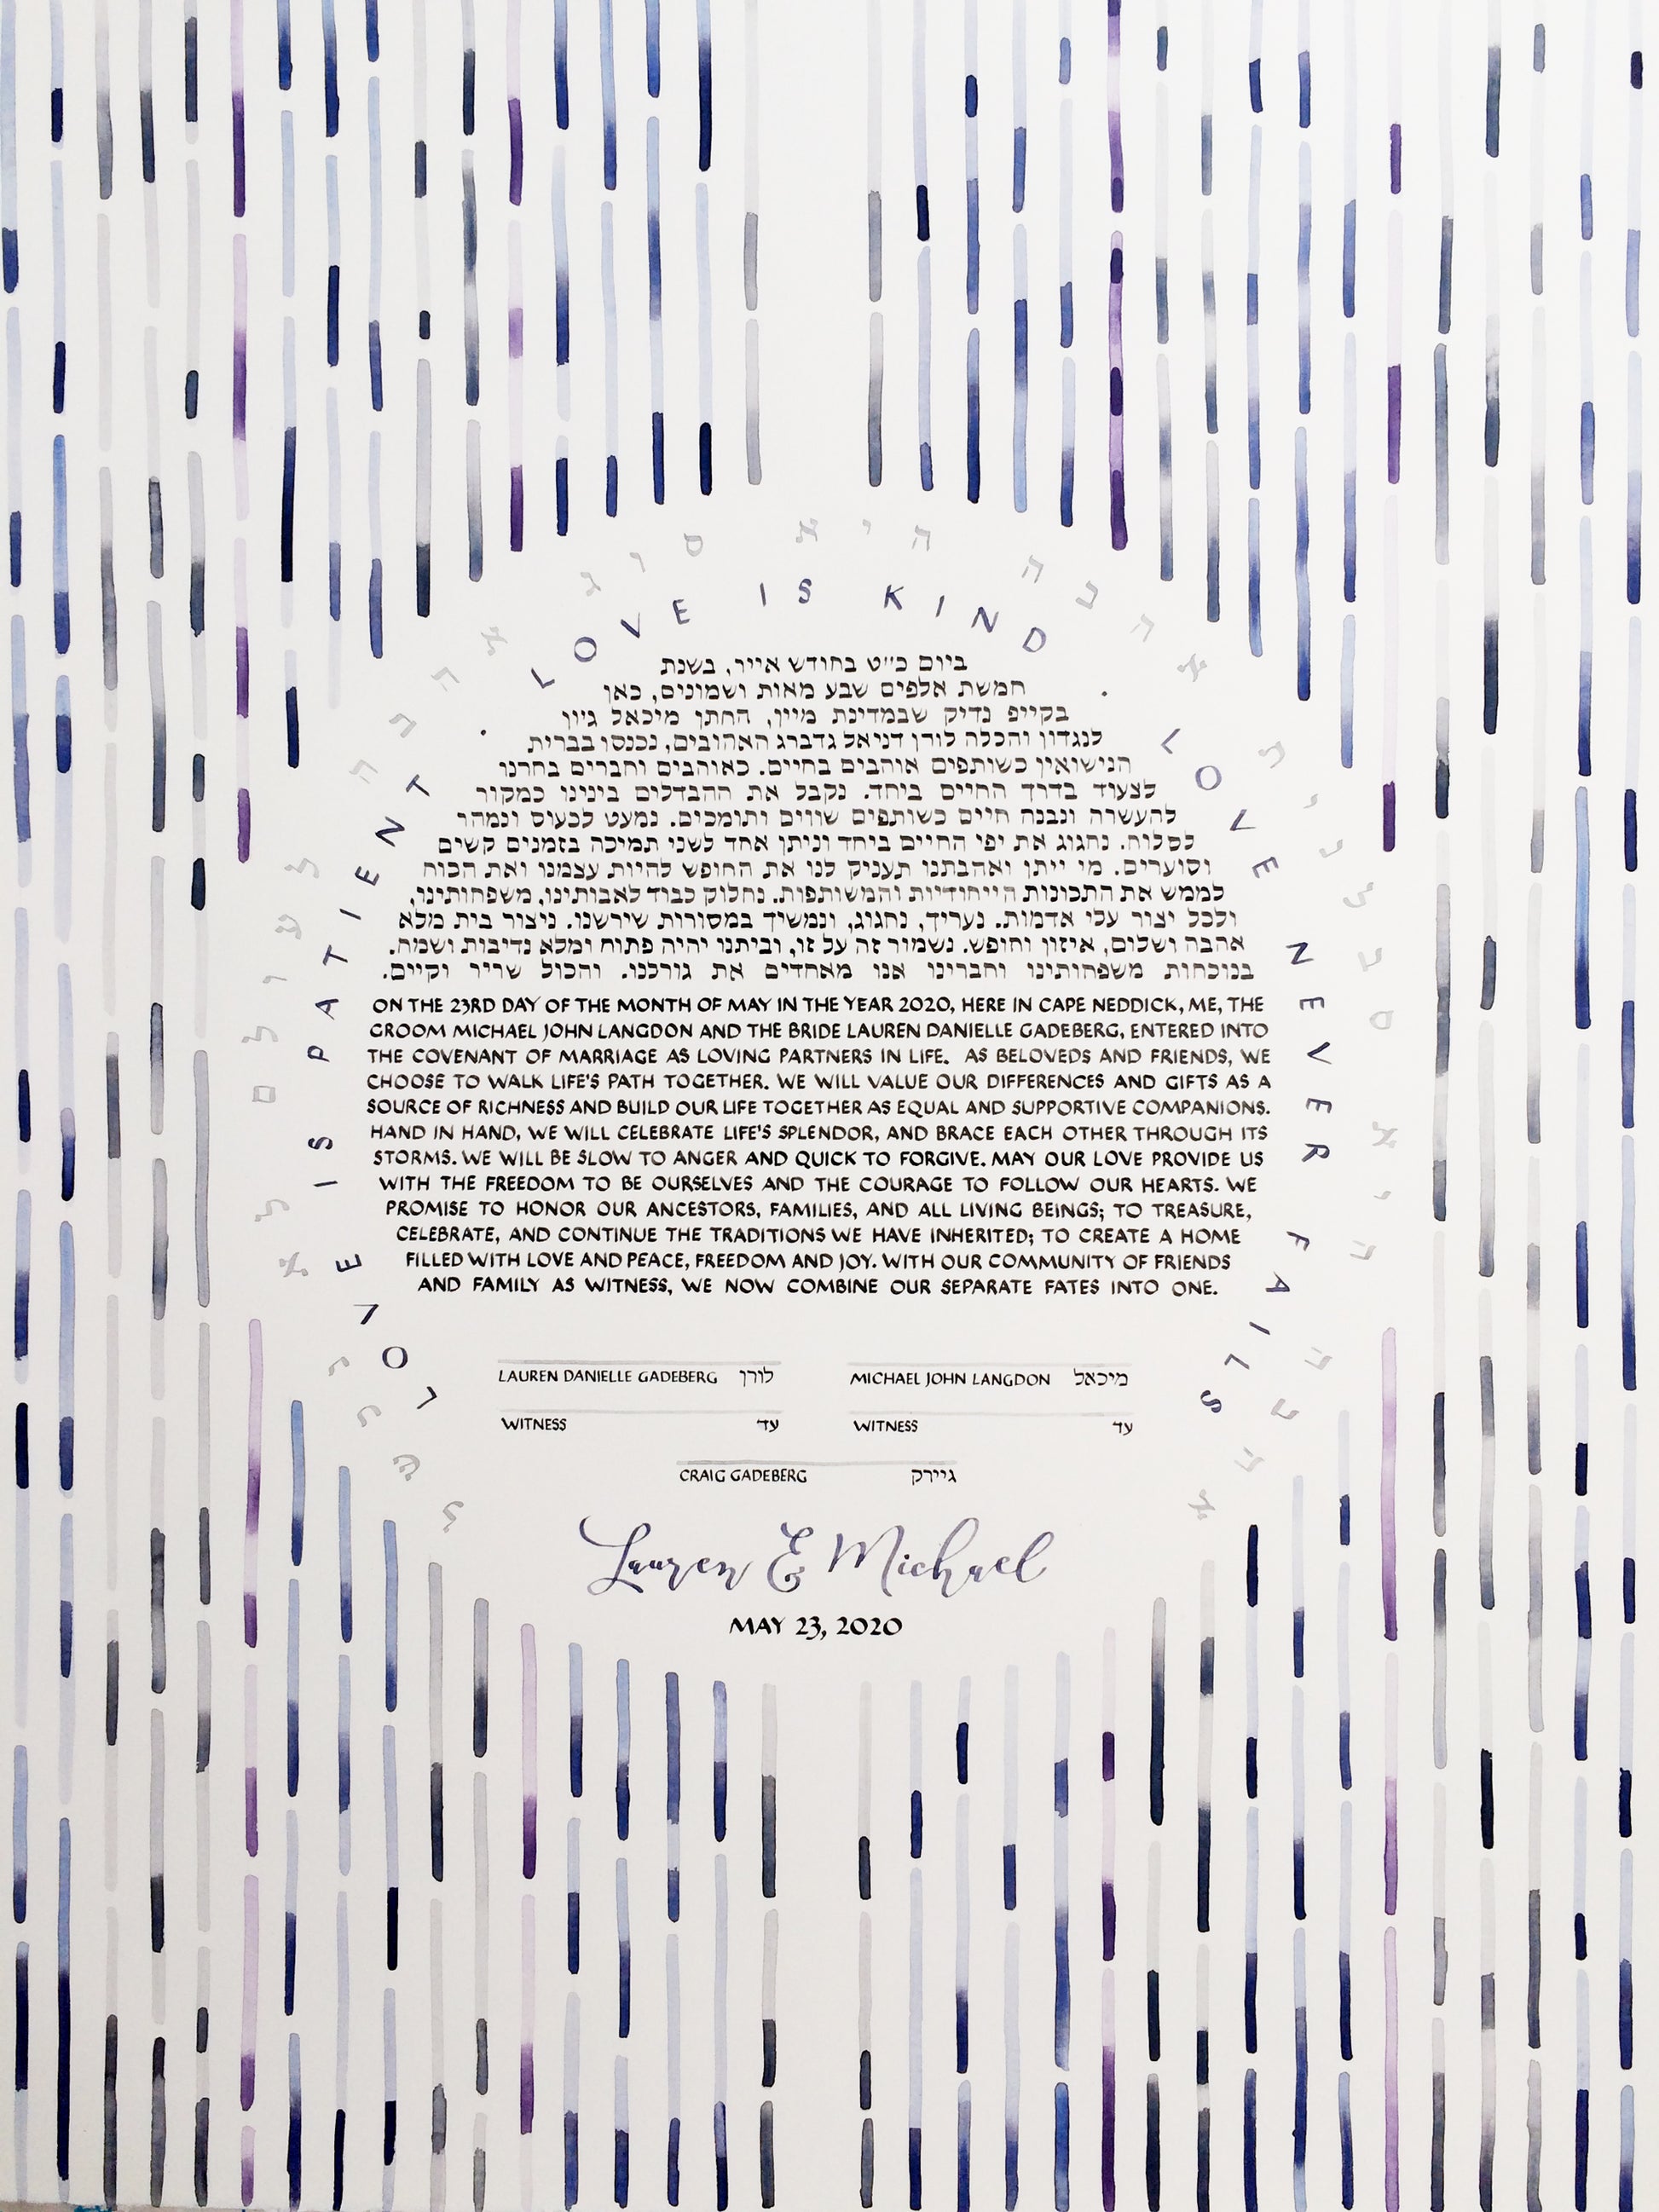 LOVE IS PATIENT · LOVE IS KIND · LOVE NEVER FAILS
ביום כ״ט בחודש אייר, בשנת
חמשת אלפים שבע מאות ושמונים, כאן
בקייפ נדיק שבמדינת מיין, החתן מיכאל ג׳ון
לנגדון והכלה לורן דניאל גדברג האהובים, נכנסו בברית
הנישואין כשותפים אוהבים בחיים. כאוהבים וחברים בחרנו
לצעוד בדרך החיים ביחד. נקבל את ההבדלים בינינו כמקור
להעשרה ונבנה חיים כשותפים שווים ותומכים. נמעט לכעוס ונמהר
לסלוח. נחגוג את יפי החיים ביחד וניתן אחד לשני תמיכה בזמנים קשים
וסוערים. מי ייתן ואהבתנו תעניק לנו את החופש להיות עצמנו ואת הכוח
לממש את התכונות הייחודיות והמשותפות. נחלוק כבוד לאבותינו, משפחותינו,
ולכל יצור עלי אדמות. נעריך, נחגוג, ונמשיך במסורות שירשנו. ניצור בית מלא
אהבה ושלום, איזון וחופש. נשמור זה על זו, וביתנו יהיה פתוח ומלא נדיבות ושמחה.
בנוכחות משפחותינו וחברינו אנו מאחדים את גורלנו. והכול שריר וקיים.
ON THE 23RD DAY OF THE MONTH OF MAY IN THE YEAR 2020, HERE IN CAPE NEDDICK, ME, THE
GROOM MICHAEL JOHN LANGDON AND THE BRIDE LAUREN DANIELLE GADEBERG, ENTERED INTO
THE COVENANT OF MARRIAGE AS LOVING PARTNERS IN LIFE. AS BELOVEDS AND FRIENDS, WE
CHOOSE TO WALK LIFE'S PATH TOGETHER. WE WILL VALUE OUR DIFFERENCES AND GIFTS AS A
SOURCE OF RICHNESS AND BUILD OUR LIFE TOGETHER AS EQUAL AND SUPPORTIVE COMPANIONS.
HAND IN HAND, WE WILL CELEBRATE LIFE'S SPLENDOR, AND BRACE EACH OTHER THROUGH ITS
STORMS. WE WILL BE SLOW TO ANGER AND QUICK TO FORGIVE. MAY OUR LOVE PROVIDE US
WITH THE FREEDOM TO BE OURSELVES AND THE COURAGE TO FOLLOW OUR HEARTS. WE
PROMISE TO HONOR OUR ANCESTORS, FAMILIES, AND ALL LIVING BEINGS; TO TREASURE,
CELEBRATE, AND CONTINUE THE TRADITIONS WE HAVE INHERITED; TO CREATE A HOME
FILLED WITH LOVE AND PEACE, FREEDOM AND JOY. WITH OUR COMMUNITY OF FRIENDS
AND FAMILY AS WITNESS, WE NOW COMBINE OUR SEPARATE FATES INTO ONE.
LAUREN DANIELLE GADEBERG לורן MICHAEL JOHN LANGDON מיכאל
WITNESS עד WITNESS עד
CRAIG GADEBERG גיירק
Lauren & Michael
MAY 23, 2020